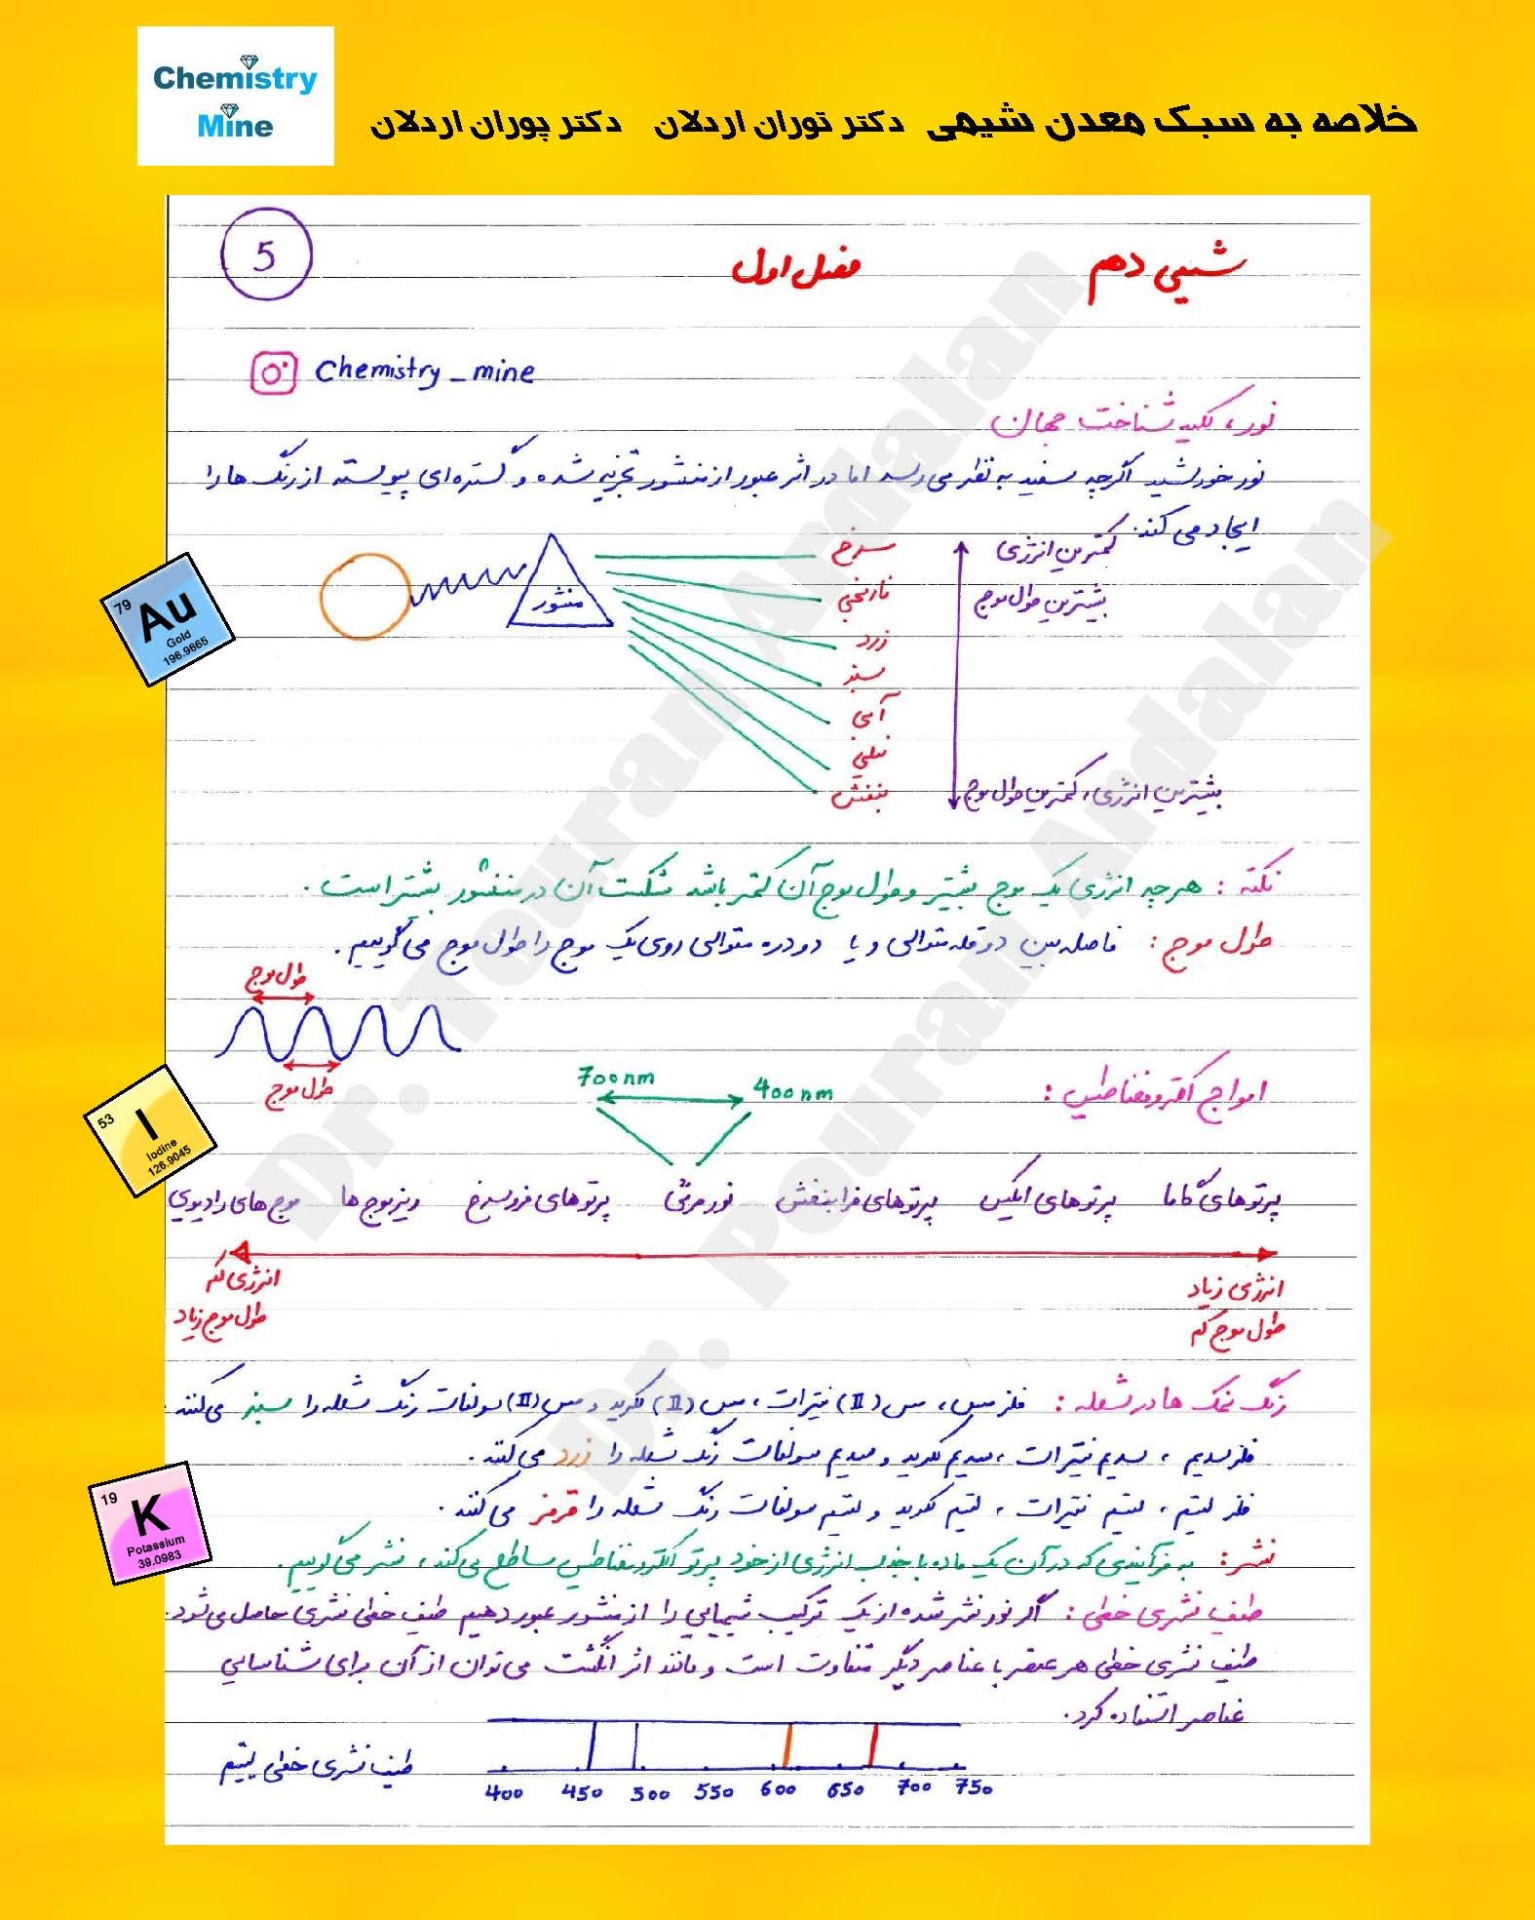 Chemistry
Mine
خلاصه به سبک معدن شیمی دکتر توران اردلان دکتر پوران اردلان
شیمی دهم فصل اول 5
Chemistry_mine
نور، کلید شناخت جهان
نور خورشید اگرچه سفید به نظر می رسد اما در اثر عبور از منشور تجزیه شده و گستره ای پیوسته از رنگ ها را
ایجاد می کند.
منشور
سرخ
نارنجی
زرد
سبز
آبی
نیلی
بنفش
کمترین انرژی
بیشترین طول موج
بیشترین انرژی، کمترین طول موج
نکته : هرچه انرژی یک موج بیشتر و طول موج آن کمتر باشد شکست آن در منشور بیشتر است.
طول موج : فاصله بین دو قله متوالی و یا دو دره متوالی روی یک موج را طول موج می گوییم.
طول موج
طول موج
امواج الکترومغناطیس :
700nm 400nm
پرتوهای گاما پرتوهای ایکس پرتوهای فرابنفش نور مرئی پرتوهای فروسرخ ریزموج ها موج های رادیویی
انرژی زیاد انرژی کم
طول موج کم طول موج زیاد
رنگ نمک ها در شعله : فلز مس، مس (II) نیترات، مس (II) کلرید و مس (II) سولفات رنگ شعله را سبز می کنند
فلز سدیم ، سدیم نیترات ، سدیم کلرید و سدیم سولفات رنگ شعله را زرد می کنند.
فلز لیتیم ، لیتیم نیترات ، لیتیم کلرید و لیتیم سولفات رنگ شعله را قرمز می کنند.
نشر : به فرآیندی که در آن یک ماده با جذب انرژی از خود پرتو الکترومغناطیس ساطع می کند، نشر می گوییم.
طیف نشری خطی : اگر نور نشر شده از یک ترکیب شیمیایی را از منشور عبور دهیم طیف خطی نشری حاصل می شود.
طیف نشری خطی هر عنصر با عناصر دیگر متفاوت است و مانند اثر انگشت می توان از آن برای شناسایی
عناصر استفاده کرد.
طیف نشری خطی لیتیم
400 450 500 550 600 650 700 750
79
Au
Gold
196.9665
53
I
Iodine
126.9045
19
K
Potassium
39.0983
Dr. Touran Ardalan
Dr. Pouran Ardalan